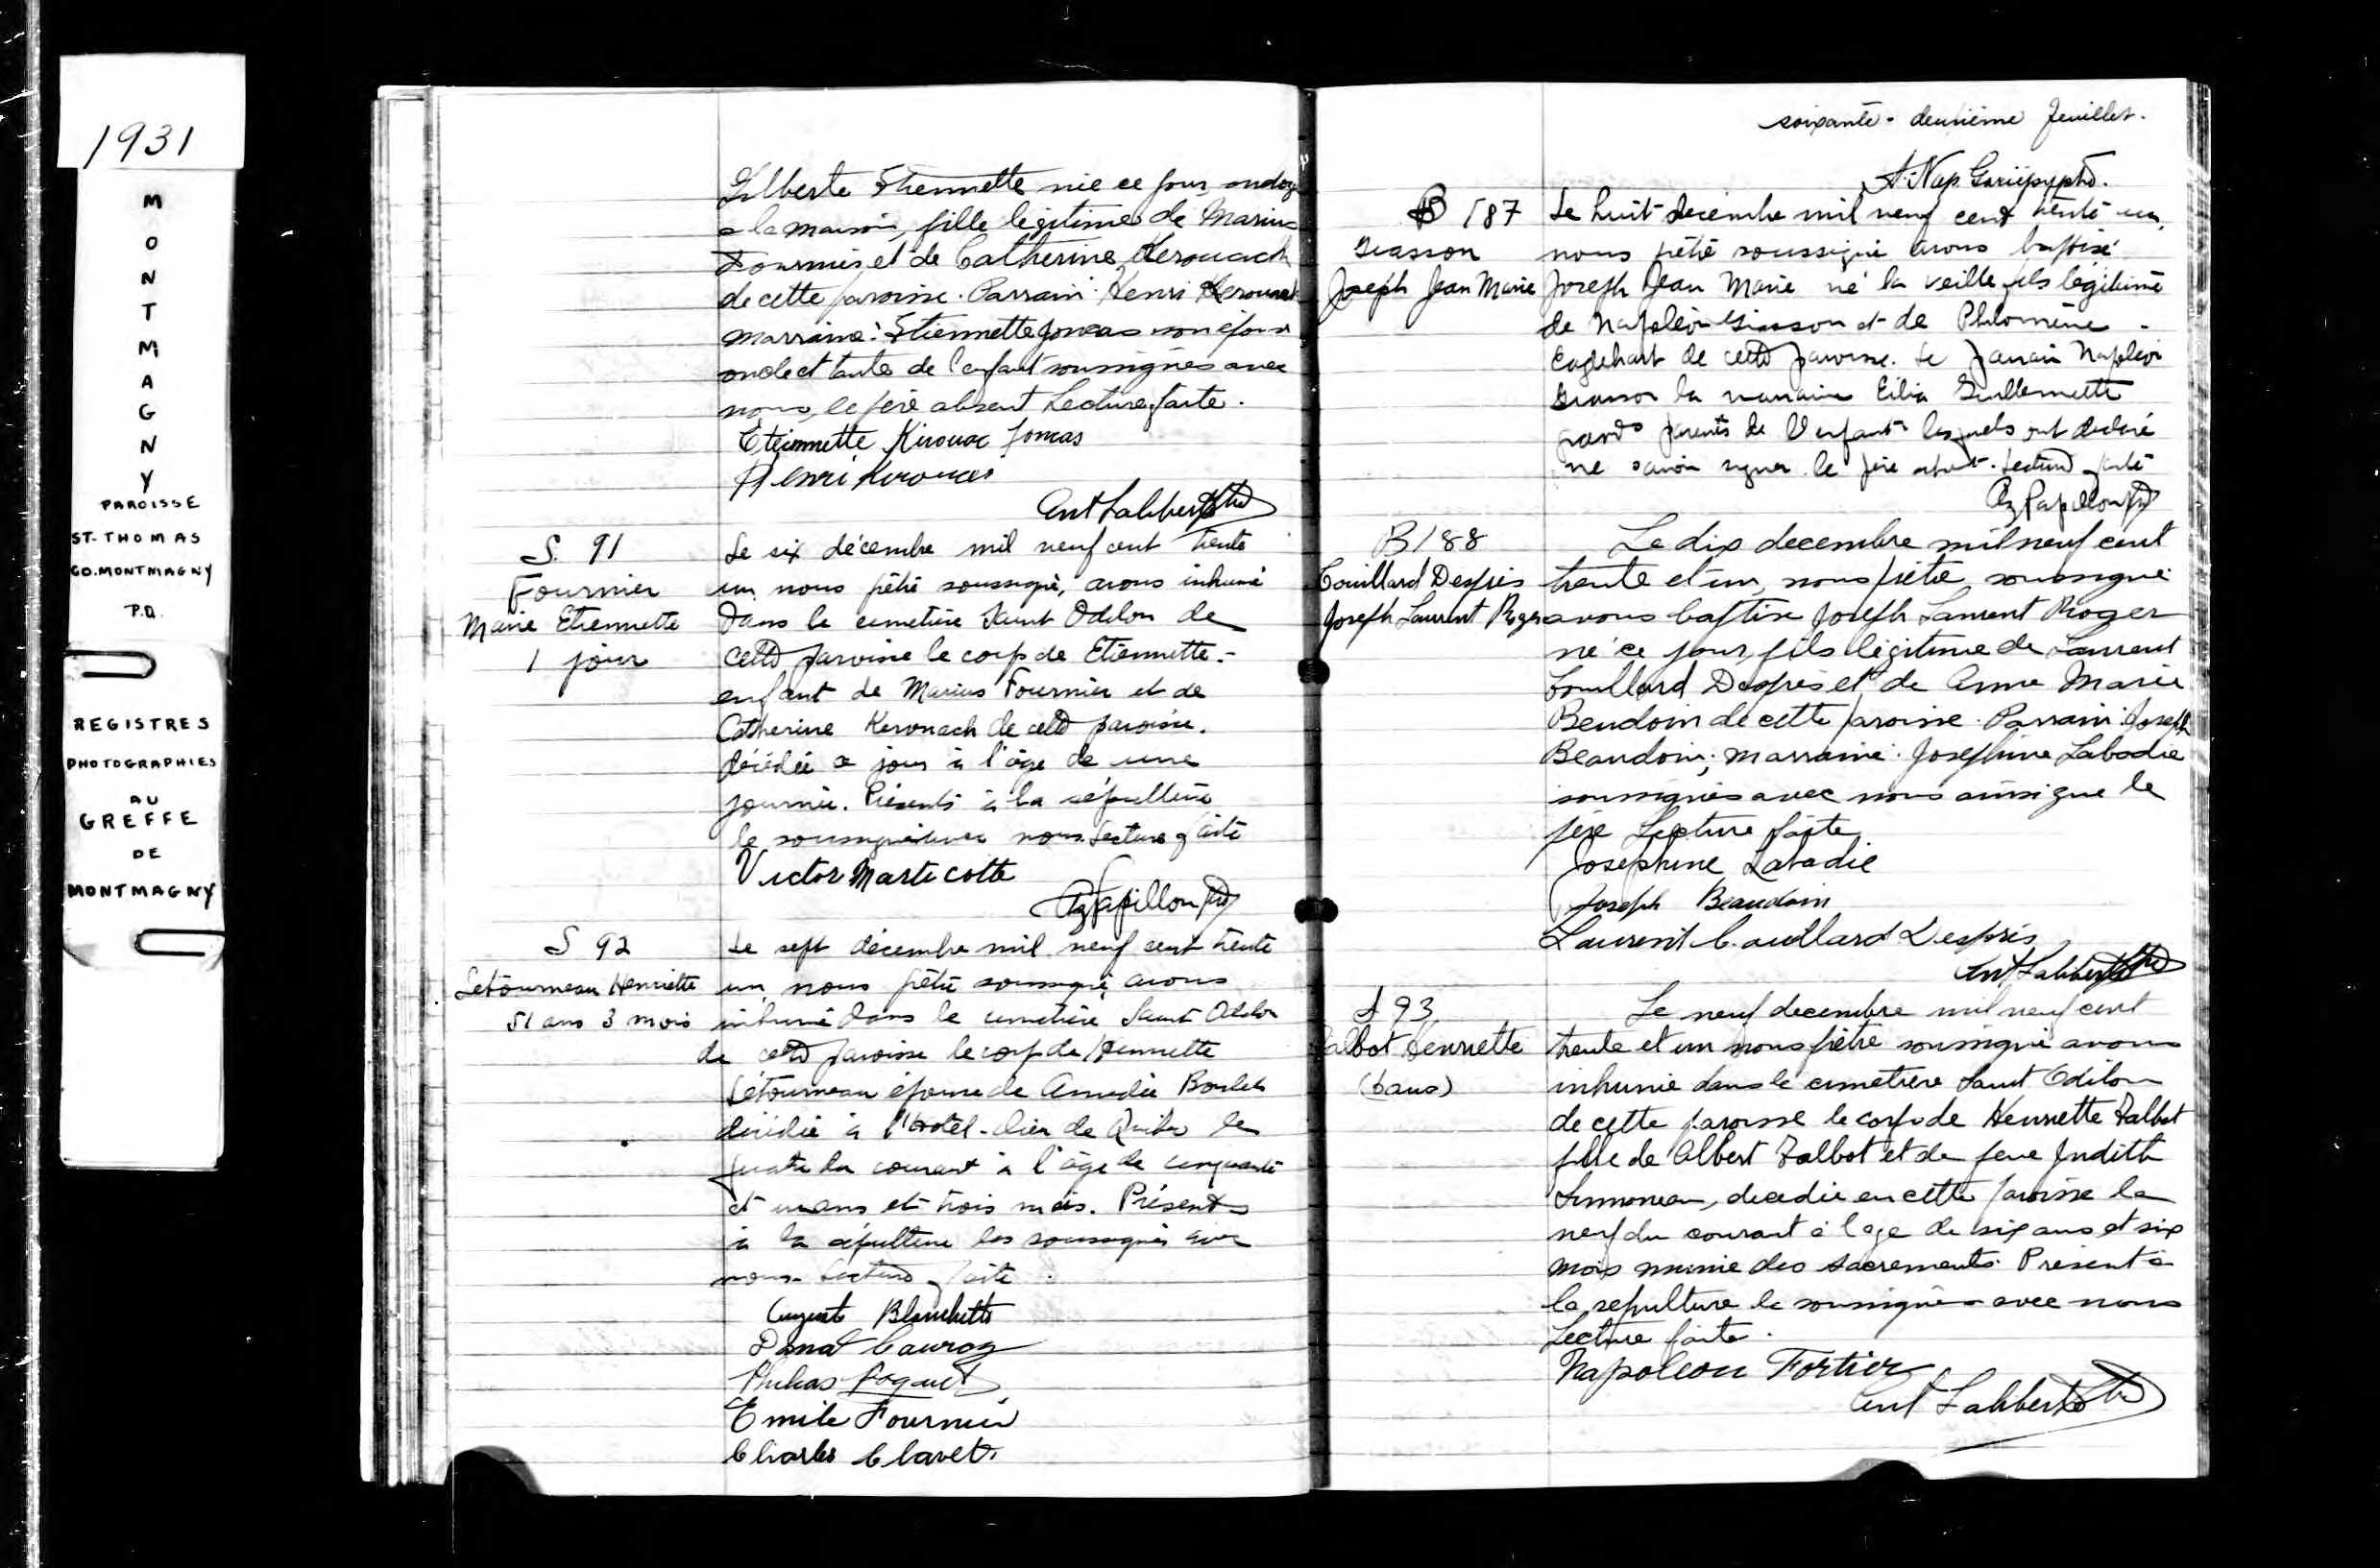 1931
MONTMAGNY
PAROISSE
ST-THOMAS
CO. MONTMAGNY
P.Q.
REGISTRES
PHOTOGRAPHIES
AU
GREFFE
DE
MONTMAGNY
Gilberte Etiennette née ce jour, ondoyé
a la maison, fille légitime de Marius
Fournier et de Catherine Kerouach
de cette paroisse. Parrain: Henri Kerouack
marraine: Etiennette Joncas son épouse
oncle et tante de l'enfant soussignés avec
nous, le père absent Lecture faite.
Etiennette Kirouac Joncas
Henri Kerouac
Ant Laliberté ptre
S. 91
Fournier
Marie Etiennette
1 jour
Le six décembre mil neuf cent trente
un, nous prêtre soussigné, avons inhumé
dans le cimetière Saint Odilon de
cette paroisse le corps de Etiennette.-
enfant de Marius Fournier et de
Catherine Kerouach de cette paroisse.
décédée ce jour à l'âge de une
journée. Présents à la sépulture
le soussigné avec nous. Lecture faite
Victor Marticotte
Papillon ptre
S 92
Letourneau Henriette
51 ans 3 mois
Le sept décembre mil neuf cent trente
un, nous prêtre soussigné, avons
inhumé dans le cimetière Saint Odilon
de cette paroisse le corps de Henriette
Létourneau épouse de Amédée Boulet
décédée à l'Hotel-Dieu de Québec le
quatre du courant à l'âge de cinquante
et un ans et trois mois. Présents
à la sépulture les soussignés avec
nous. Lecture faite.
Auguste Blanchette
Donat
Paquet
Emile Fournier
Charles Clavet
soixante-deuxième feuillet.
A. Nap. Gariépy ptre.
B 187
Giasson
Joseph Jean Marie
Le huit décembre mil neuf cent trente un,
nous prêtre soussigné avons baptisé
Joseph Jean Marie né la veille fils légitime
de Napoléon Giasson et de Philomène -
de cette paroisse. Le parrain Napoléon
Giasson la marraine Guillemette
grands parents de l'enfant lesquels ont déclaré
ne savoir signer le père absent. Lecture faite
Papillon ptre
B 188
Couillard Després
Joseph Laurent Roger
Le dix decembre mil neuf cent
trente et un, nous prêtre soussigné
avons baptisé Joseph Laurent Roger
né ce jour, fils légitime de Laurent
Couillard Després et de Anne Marie
Beudoin de cette paroisse. Parrain: Joseph
Beaudoin; marraine: Joséphine Labadie
soussignés avec nous ainsi que le
père Lecture faite
Josephine Labadie
Joseph Beaudoin
Laurent Couillard Després
Ant Laliberté ptre
S 93
Talbot Henriette
(6 ans)
Le neuf decembre mil neuf cent
trente et un nous prêtre soussigné avons
inhumé dans le cimetière Saint Odilon
de cette paroisse le corps de Henriette Talbot
fille de Albert Talbot et de feue Judith
Simoneau, decedée en cette paroisse le
neuf du courant à l'age de six ans et six
mois munie des sacrements. Présent à
la sepulture le soussigné avec nous
Lecture faite.
Napoleon Fortier
Ant Laliberté ptre